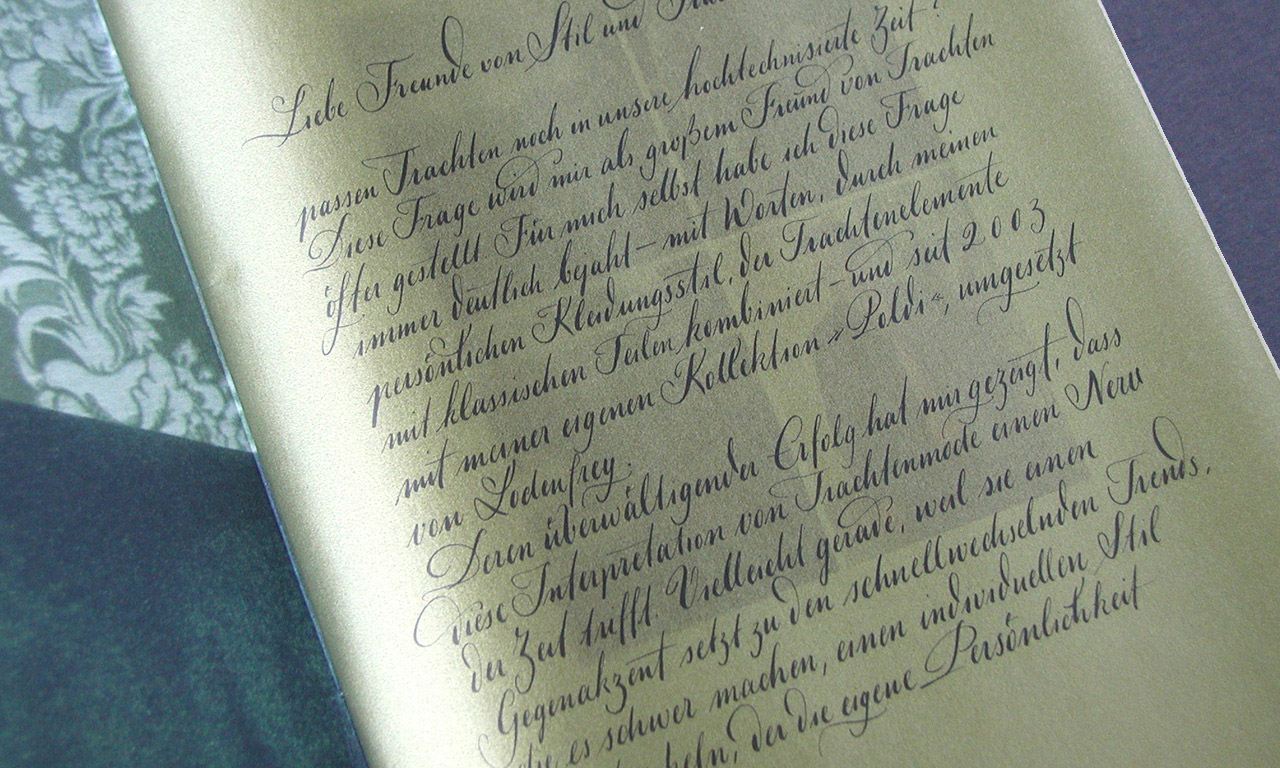 Liebe Freunde von Stil und
passen Trachten noch in unsere hochtechnisierte Zeit?
Diese Frage wird mir als großem Freund von Trachten
öfter gestellt Für mich selbst habe ich diese Frage
immer deutlich bejaht – mit Worten, durch meinen
persönlichen Kleidungsstil, der Trachtenelemente
mit klassischen Teilen kombiniert – und seit 2003
mit meiner eigenen Kollektion »Poldi«, umgesetzt
von Lodenfrey.
Deren überwältigender Erfolg hat mir gezeigt, dass
diese Interpretation von Trachtenmode einen Nerv
der Zeit trifft. Vielleicht gerade, weil sie einen
Gegenakzent setzt zu den schnellwechselnden Trends,
die es schwer machen, einen individuellen Stil
der die eigene Persönlichkeit